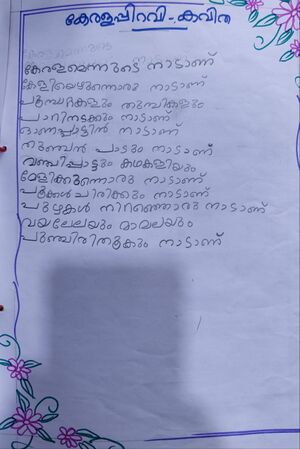 കേരളപ്പിറവി - കവിത
കേരളമെന്നുടെ നാടാണ്
കേളിയെഴുന്നൊരു നാടാണ്
പൂമ്പാറ്റകളും തുമ്പികളും
പാറിനടക്കും നാടാണ്
ഓണപ്പാട്ടിൻ നാടാണ്
തുഞ്ചൻ പാടും നാടാണ്
വഞ്ചിപ്പാട്ടും കഥകളിയും
മേളിക്കുന്നൊരു നാടാണ്
പൂക്കൾ ചിരിക്കും നാടാണ്
പുഴകൾ നിറഞ്ഞൊരു നാടാണ്
വയലേലയും മാമലയും
പുഞ്ചിരിതൂകും നാടാണ്